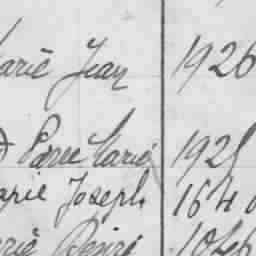 arie Jean 1926
Pierre Marie 192
arie Joseph 1640
arie Désiré 1046